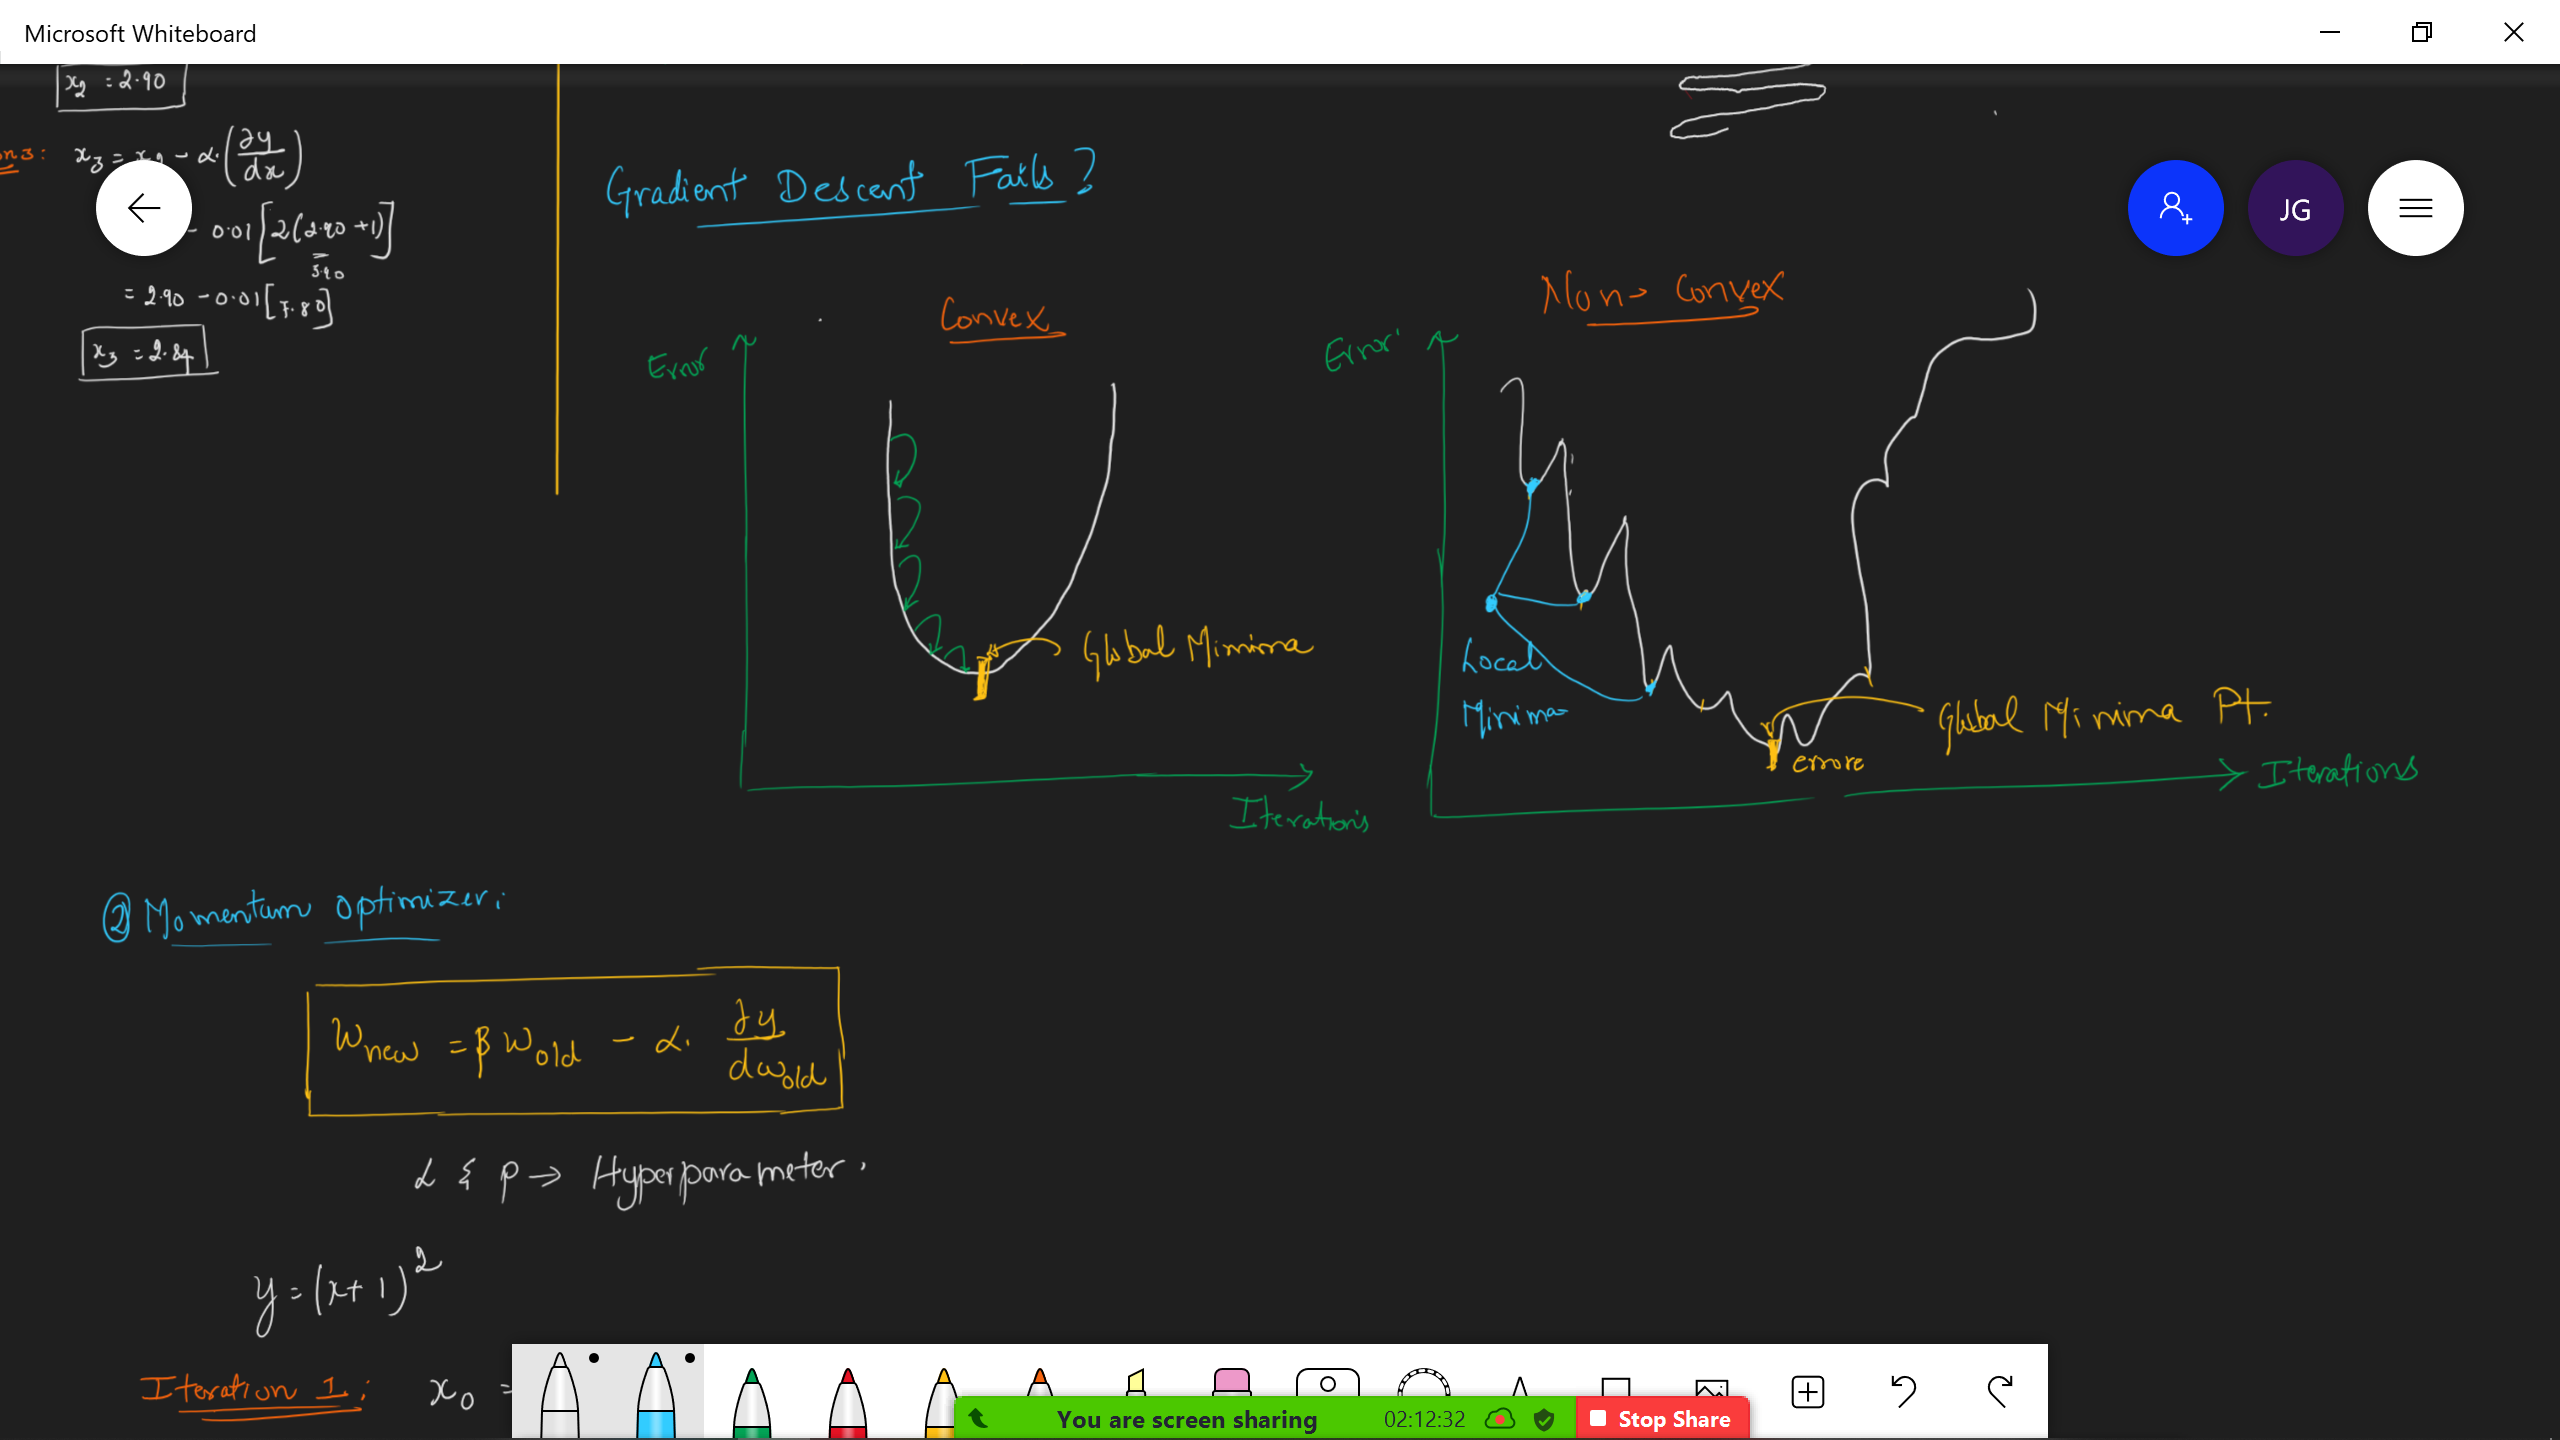 Microsoft Whiteboard
x₂ = 2.90
on 3: x₃ = x₂ - α.(∂y/dx)
- 0.01[2(2.90+1)]
3.90
= 2.90 - 0.01[7.80]
x₃ = 2.84
Gradient Descent Fails?
JG
Convex
Error
Global Minima
Iterations
Non- Convex
Error
Local
Minima
Global Minima Pt.
errore
Iterations
② Momentum optimizer:
Wnew = β Wold - α. ∂y/dwold
α & β → Hyperparameter.
y = (x+1)²
Iteration 1: x₀ =
You are screen sharing 02:12:32 Stop Share